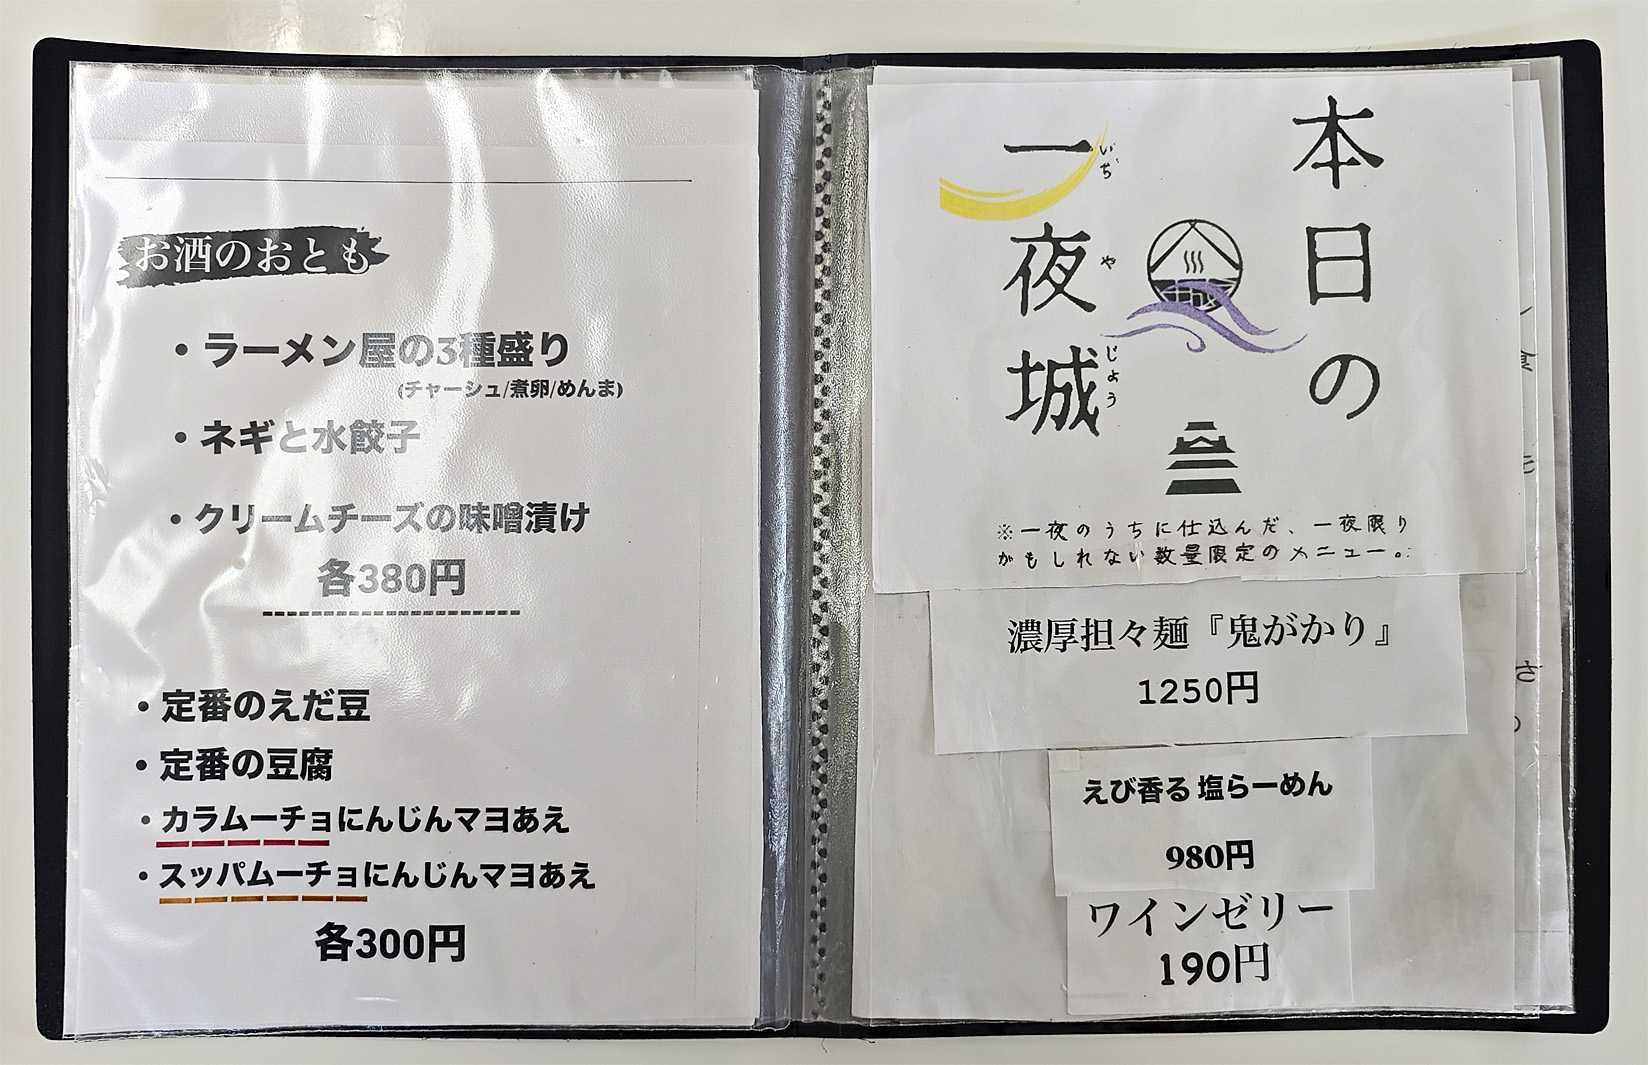 お酒のおとも
・ラーメン屋の3種盛り
(チャーシュ/煮卵/めんま)
・ネギと水餃子
・クリームチーズの味噌漬け
各380円
・定番のえだ豆
・定番の豆腐
・カラムーチョにんじんマヨあえ
・スッパムーチョにんじんマヨあえ
各300円
本日の
一夜城
いちやじょう
※一夜のうちに仕込んだ、一夜限り
かもしれない数量限定のメニュー。
濃厚担々麺『鬼がかり』
1250円
えび香る 塩らーめん
980円
ワインゼリー
190円